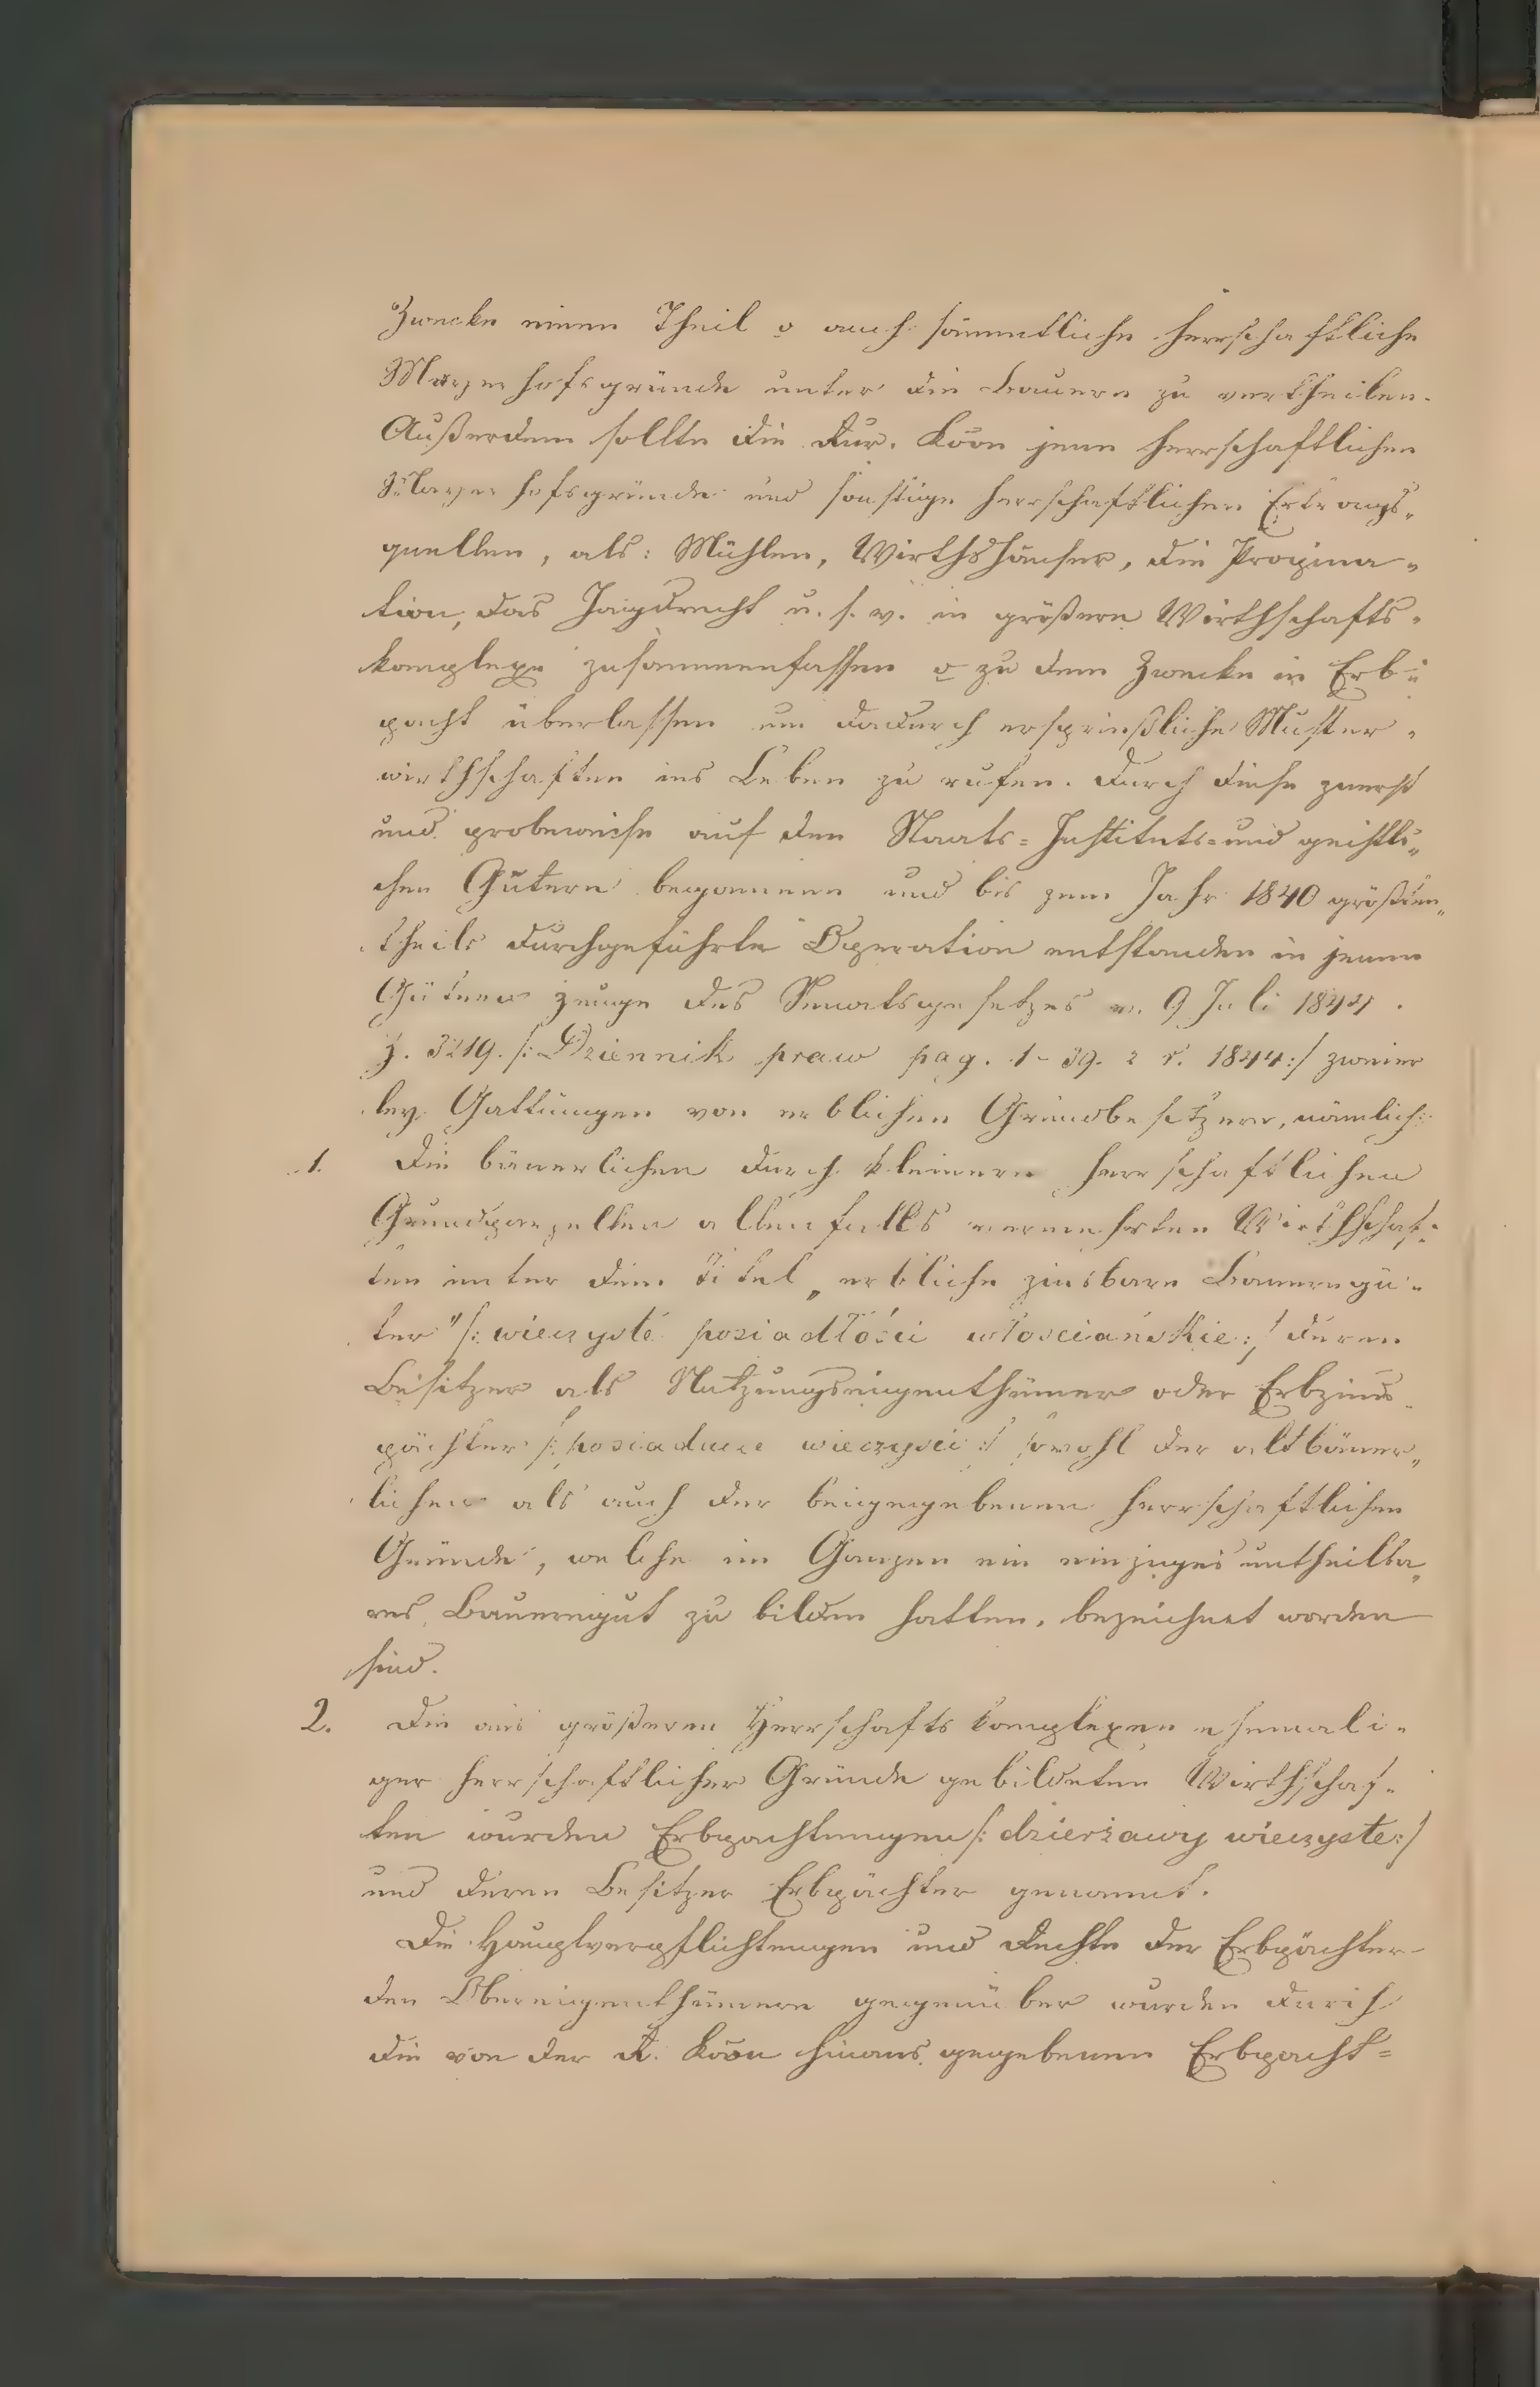 Zwecke einen Theil o auch sämmtliche herrschaftliche
Mayerhofsgründe unter die Bauern zu vertheilen.
Außerdem sollte die Aur. Koon jene herrschaftlichen
Mayerhofsgründe und sonstige herrschaftlichen Ertrags-
quellen, als: Mühlen, Wirthshäuser, die Propina-
tion, das Jagdrecht u. s. w. in größern Wirthschafts-
komplexe zusammenfassen o zu dem Zwecke in Erb-
pacht überlassen um dadurch ersprießliche Muster-
wirthschaften ins Leben zu rufen. Durch diese zuerst
und probeweise auf den Staats=Instituts=und geistli-
chen Gütern begonnene und bis zum Jahr 1840 größten-
theils durchgeführte Operation entstanden in jenen
Gütern zeuge des Senatsgesetzes v. 9 Juli 1844.
Z. 3219. /: Dziennik praw pag. 1-39. z r. 1844:/ zweier
ley Gattungen von erblichen Grundbesitzern, nämlich:
1. Die bäuerlichen durch kleinere herrschaftlichen
Grundparzellen allenfalls vermehrten Wirthschaf-
ten unter dem Titel „erbliche zinsbare Bauerngü-
ter" /: wieczyste posiadłości włościańskie :/ deren
Besitzer als Nutzungseigenthümer oder Erbzins-
pächter /: posiadacze wieczyści :/ sowohl der altbäuer-
lichen als auch der beigegebenen herrschaftlichen
Gründe, welche im Ganzen ein einziges untheilba-
res Bauerngut zu bilden hatten, bezeichnet worden
sind.
2. Die aus größeren Herrschaftskomplexen ehemali-
ger herrschaftlicher Gründe gebildeten Wirthschaf-
ten wurden Erbpachtungen /: dzierżawy wieczyste :/
und deren Besitzer Erbpächter genannt.
Die Hauptverpflichtungen und Rechte der Erbpächter
den Obereigenthümern gegenüber wurden durch
die von der A. Koon hinausgegebenen Erbpacht=